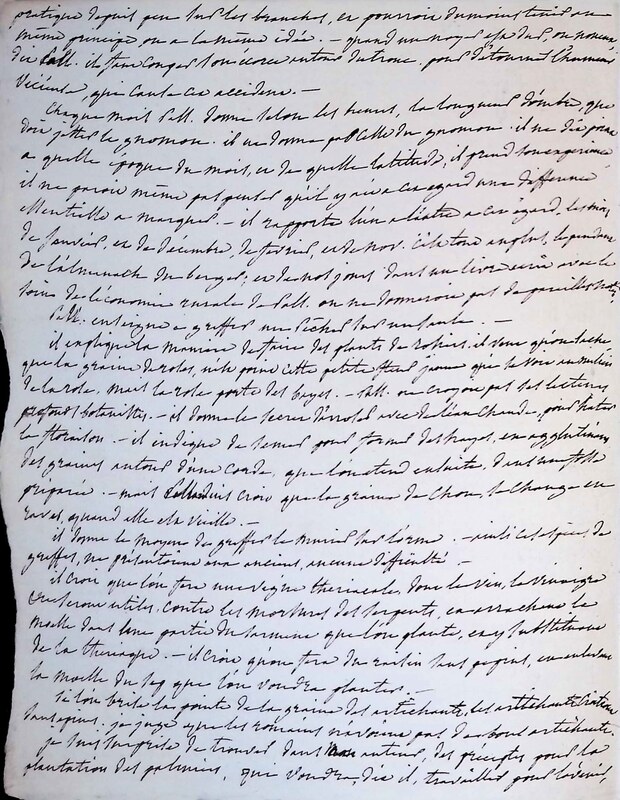 pratiqué depuis peu sur les branches, et pourroit dumoins tenir au
même principe ou a la même idée. — quand un noyer est dur, ou noueux
dit Pall. il faut couper son écorce autour du tronc, pour détourner l'humeur
vicieuse, que cause cet accident. —
Chaque mois Pall. donne selon les heures, la longueur d'ombre, que
doit jetter le gnomon. il ne donne pas celle du gnomon. il ne dit point
a quelle époque du mois, et de quelle latitude, il prend son expérience
il ne paroit même pas penser qu'il y ait a cet égard une différence
essentielle a marquer. — il rapporte l'un a l'autre a cet égard, les mois
de janvier, et de décembre, de février, et de nov. c'est tout
de l'almanach du berger; et de nos jours dans un livre écrit avec le
soin de l'économie rurale de Pall. on ne donneroit pas de pareilles
Pall. enseigne a greffer un pêcher sur un saule. —
il explique la manière de faire des plants de rosiers. il veut qu'on sache
que la graine de roses, n'est point cette petite fleur jaune que se voit au milieu
de la rose, mais la rose porte des bayes. — Pall. ne croyoit pas ses lecteurs
profonds botanistes. — il donne le secret d'arroser avec de l'eau chaude, pour hater
la floraison. — il indique de semer pour former des hayes, en agglutinant
des graines autour d'une corde, que l'on étend ensuite, dans une fosse
préparée. — mais Palladius croit que la graine de chou, se change en
raves, quand elle est vieille. —
il donne le moyen de greffer le murier sur l'orme. — ainsi ces espèces de
greffes, ne présentoient aux anciens, aucune difficulté. —
il croit que l'on fera une vigne thériacale, dont le vin, le vinaigre
seront utiles, contre les morsures des serpents, en arrachant la
moelle dans une partie du sarment que l'on plante, en y substituant
de la thériaque. — il croit qu'on fera du raisin sans pepins, en enlevant
la moelle du sep que l'on voudra planter. —
Si l'on brise la pointe de la graine des artichauts, les artichauts
sans épines. je juge que les romains n'avoient pas de bons artichauts.
je suis surprise de trouver dans mon auteur, des préceptes pour la
plantation des palmiers, qui voudra, dit il, travailler pour l'avenir,